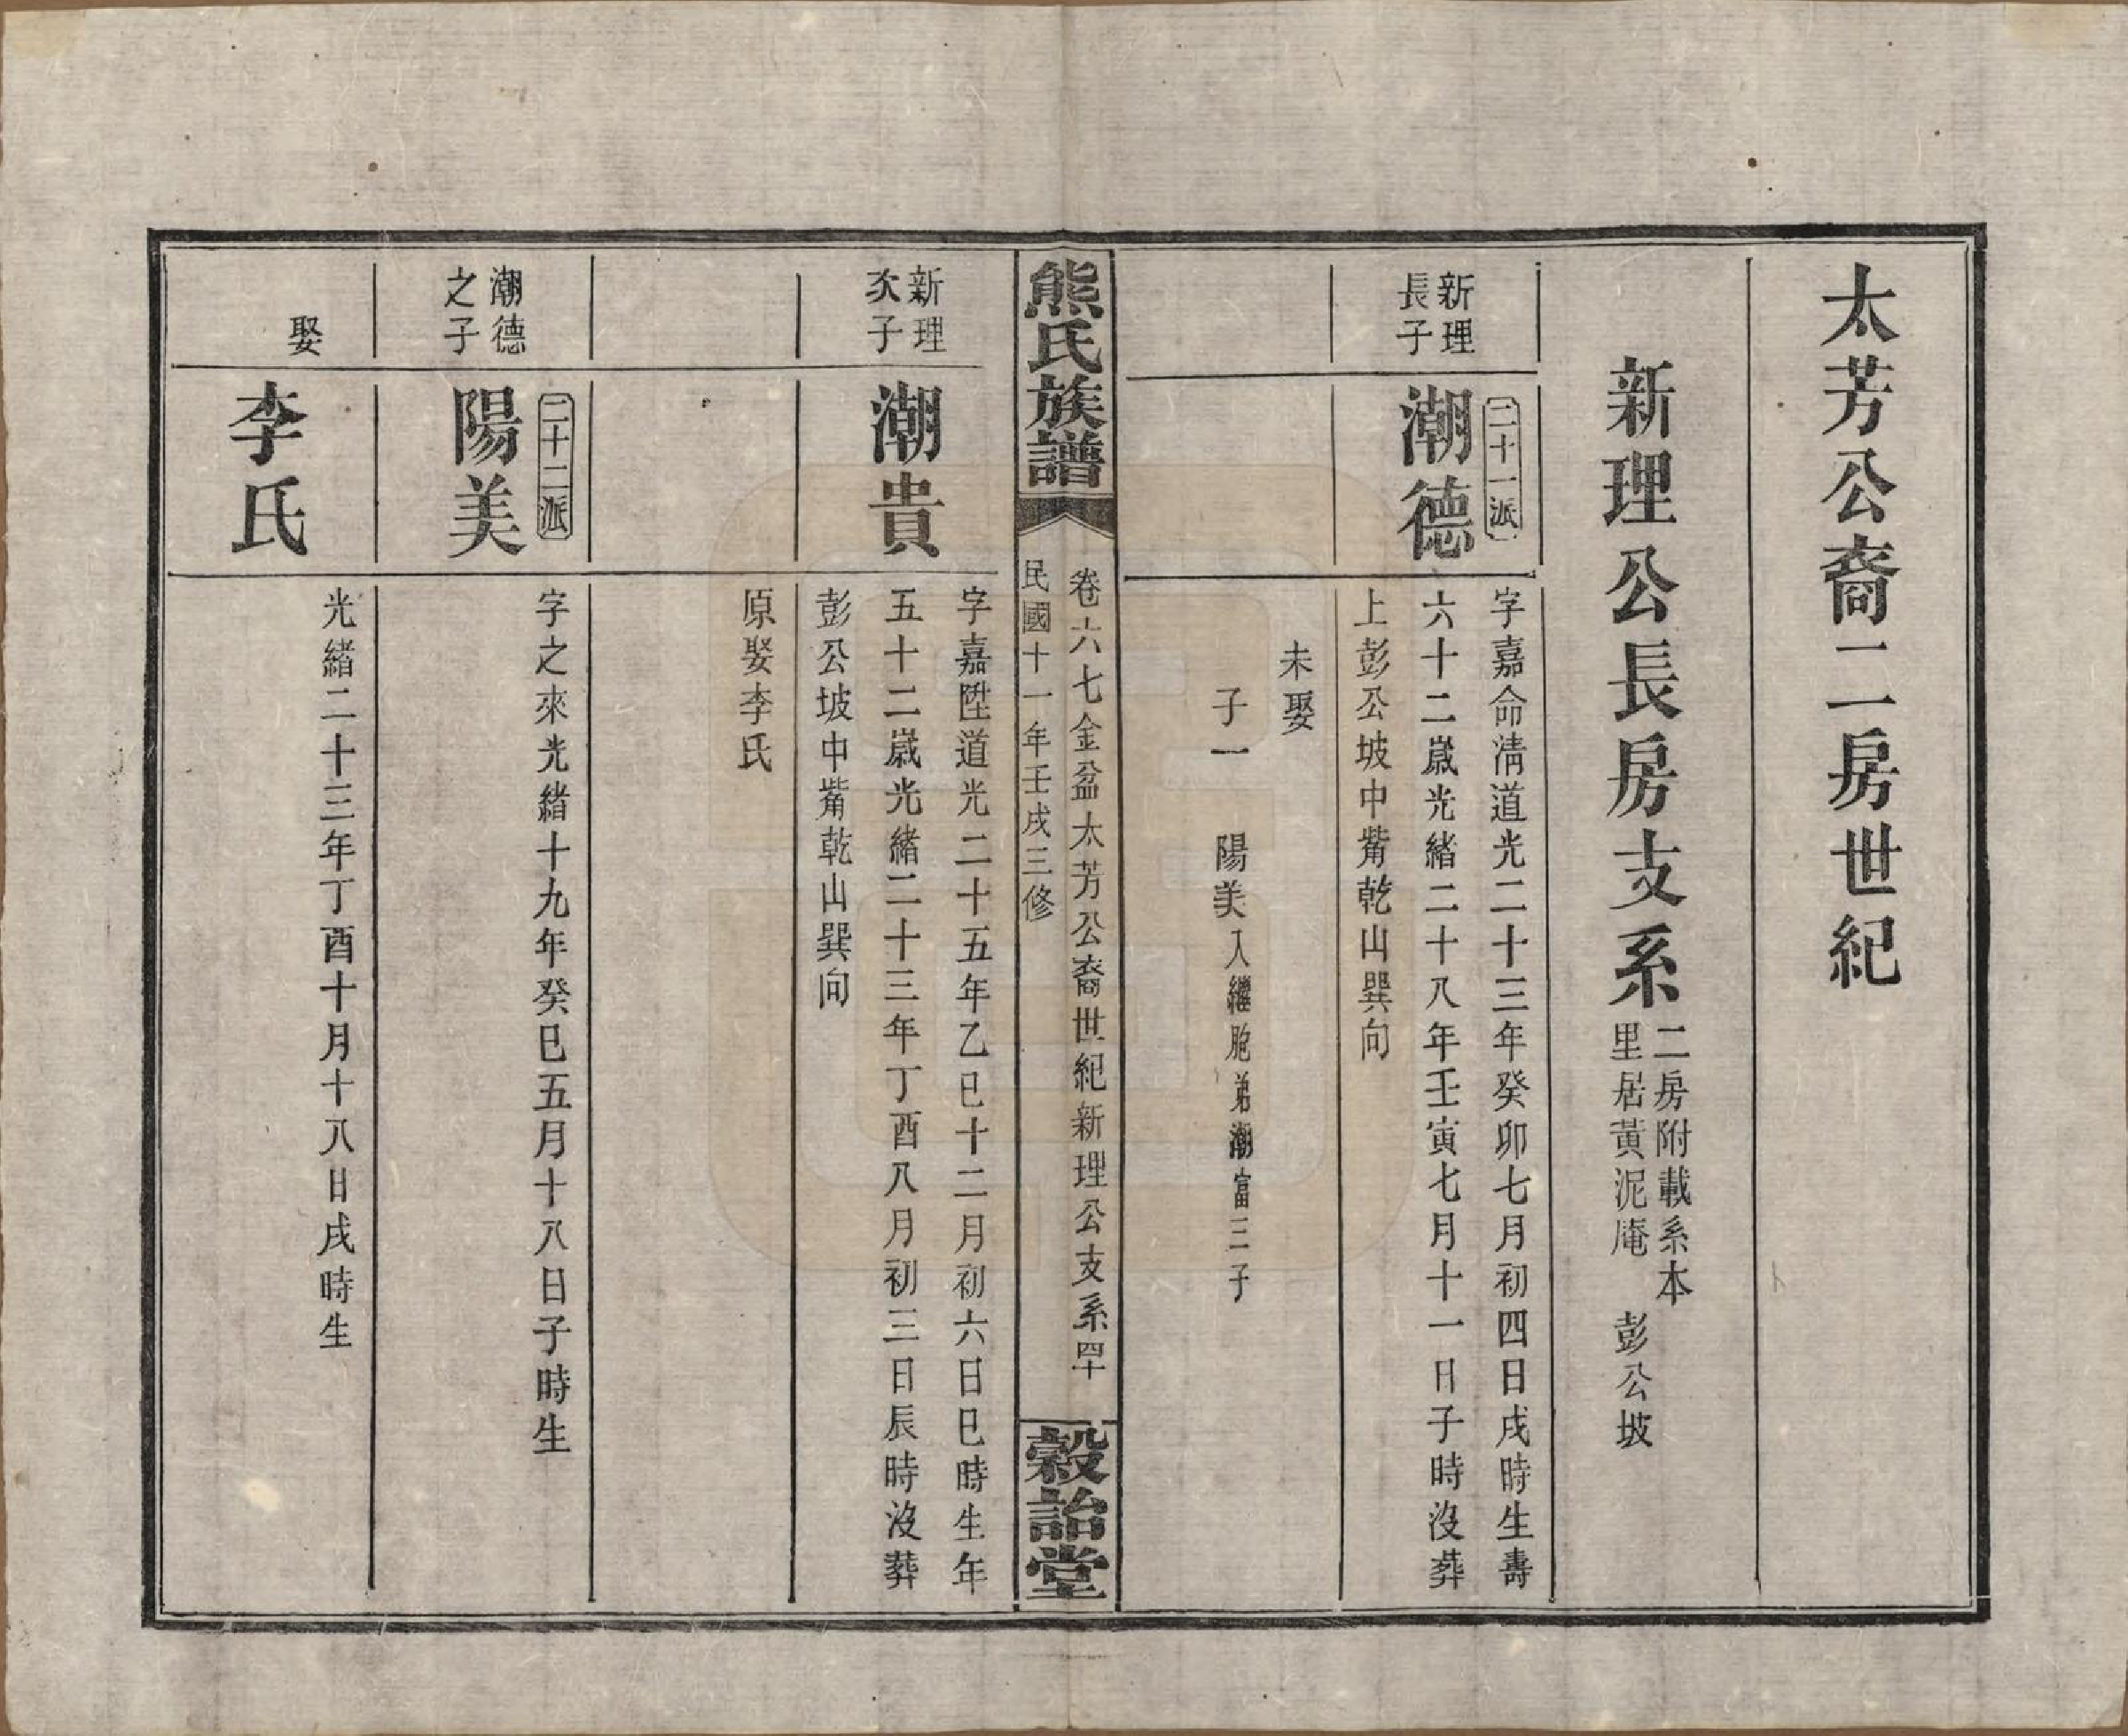 太芳公裔二房世紀
新理公長房支系
二房附載系本
里居黃泥庵 彭公坡
新理
長子
二十一派
潮德
字嘉命淸道光二十三年癸卯七月初四日戌時生壽
六十二歲光緖二十八年壬寅七月十一日子時沒葬
上彭公坡中觜乾山巽向
未娶
子一 陽美入繼胞弟潮富三子
熊氏族譜
卷六七金盆太芳公裔世紀新理公支系四十
民國十一年壬戌三修
穀詒堂
新理
次子
潮貴
字嘉陞道光二十五年乙巳十二月初六日巳時生年
五十二歲光緖二十三年丁酉八月初三日辰時沒葬
彭公坡中觜乾山巽向
原娶李氏
潮德
之子
二十二派
陽美
字之來光緖十九年癸巳五月十八日子時生
娶
李氏
光緖二十三年丁酉十月十八日戌時生